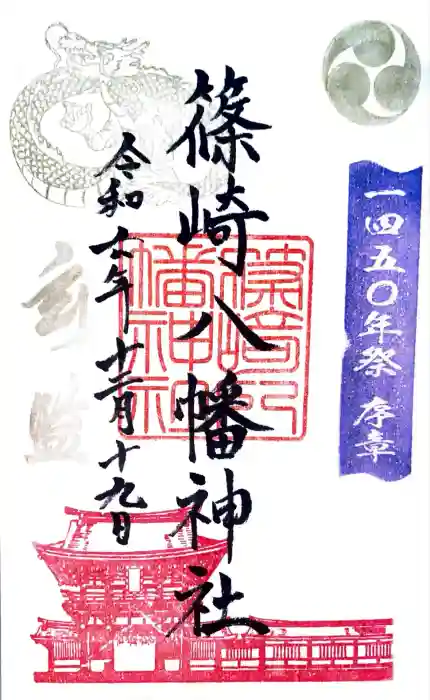 一四五〇年祭 序章
篠崎八幡神社
篠崎八
幡神社
令和六年十二月十九日